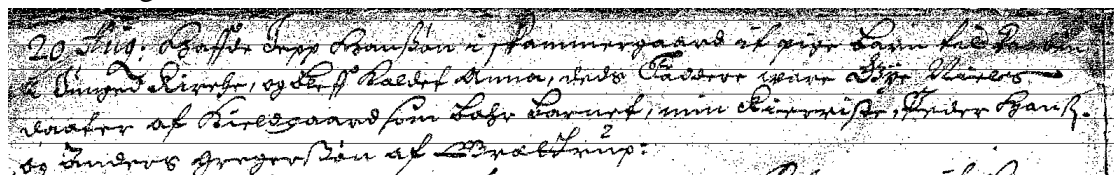 20 Aug: Haffde Jepp Hanßøn i Skammergaard it pige barn til daaben
i Lunged Kirche, og bleff kaldet Anna, dets Faddere ware Böye Nields
daater af Kieldgaard som bahr barnet, min Kierriste, Peder Hanß.
og Anders Gregersøn af Grattrup: